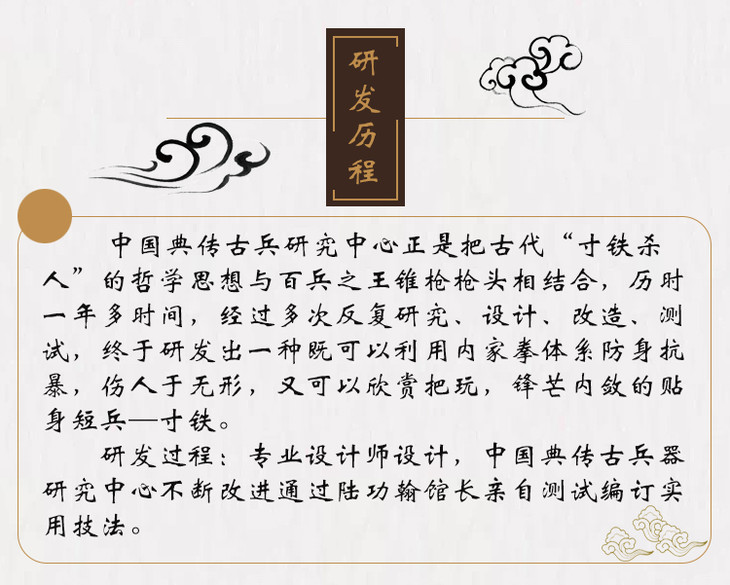 研发历程
中国典传古兵研究中心正是把古代“寸铁杀
人”的哲学思想与百兵之王锥枪枪头相结合，历时
一年多时间，经过多次反复研究、设计、改造、测
试，终于研发出一种既可以利用内家拳体系防身抗
暴，伤人于无形，又可以欣赏把玩，锋芒内敛的贴
身短兵—寸铁。
研发过程：专业设计师设计，中国典传古兵器
研究中心不断改进通过陆功翰馆长亲自测试编订实
用技法。